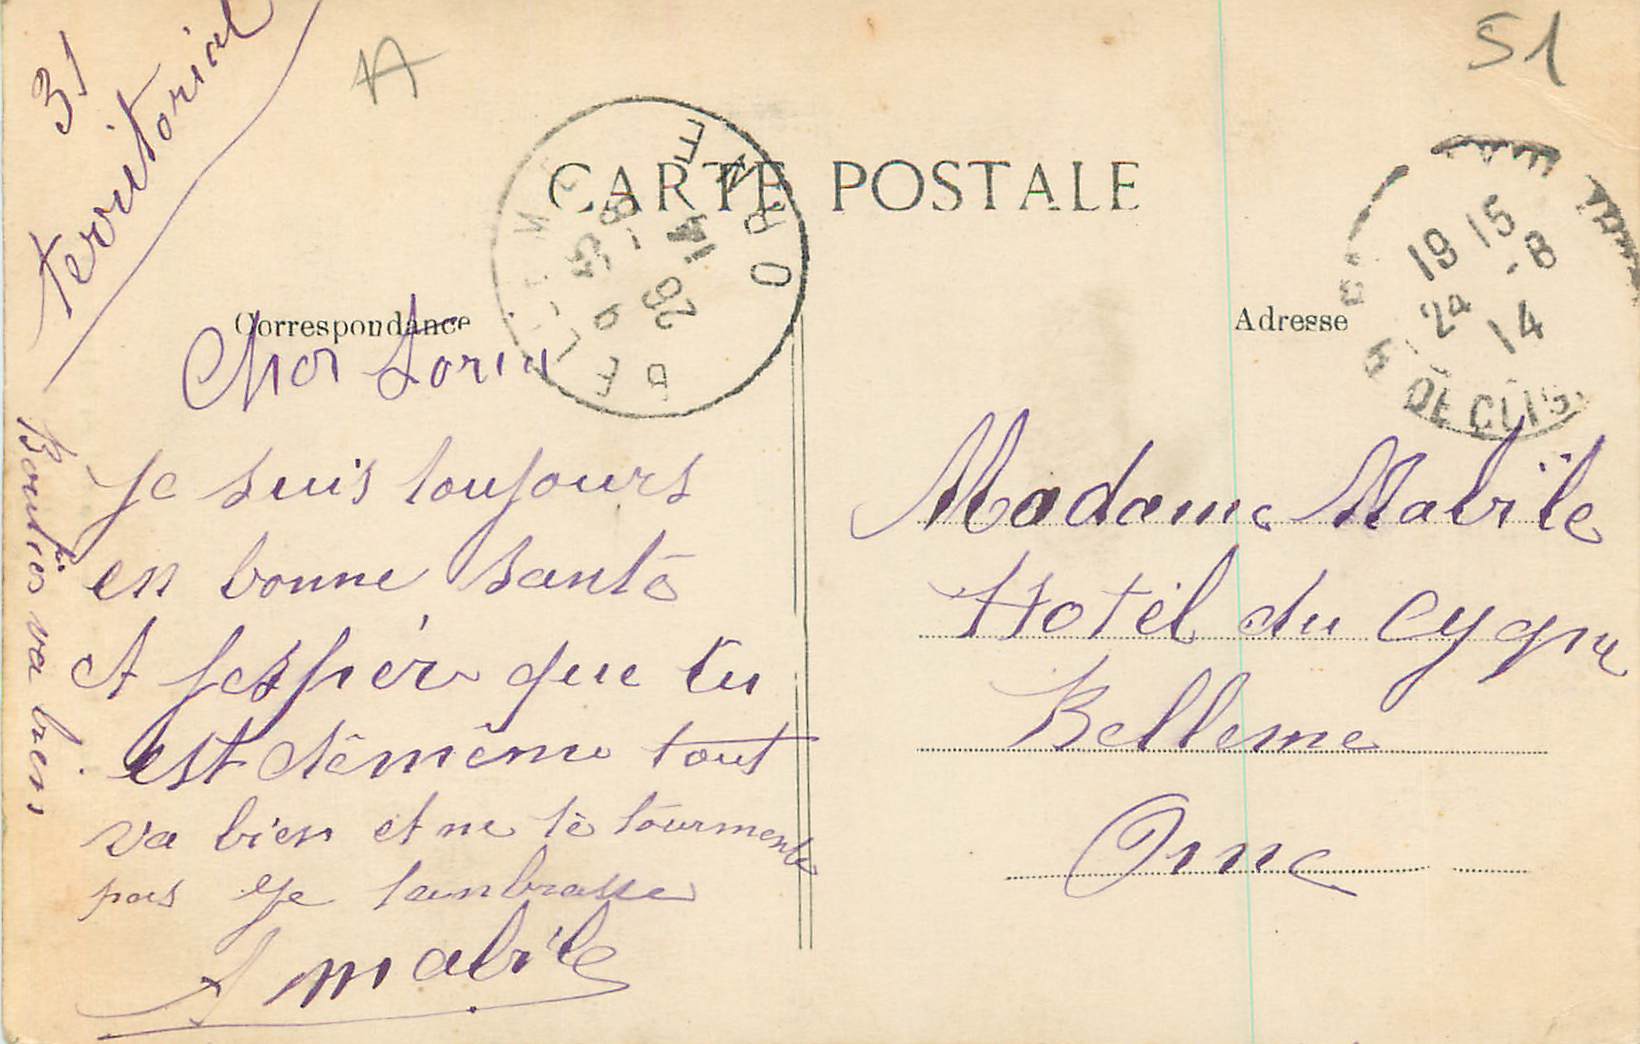 31
territorial
A
51
CARTE POSTALE
Correspondance
Adresse
BELLEME
ORNE
9 35
26 -8
14
19 15
24 -8
14
DE
Cher
Je suis toujours
en bonne santé
et j'espér que tu
est dêmême tout
va bien et ne tè tourmente
pas Je tanbrasse
A mabile
va bien
Madame Mabile
Hotel du Cygne
Belleme
Orne